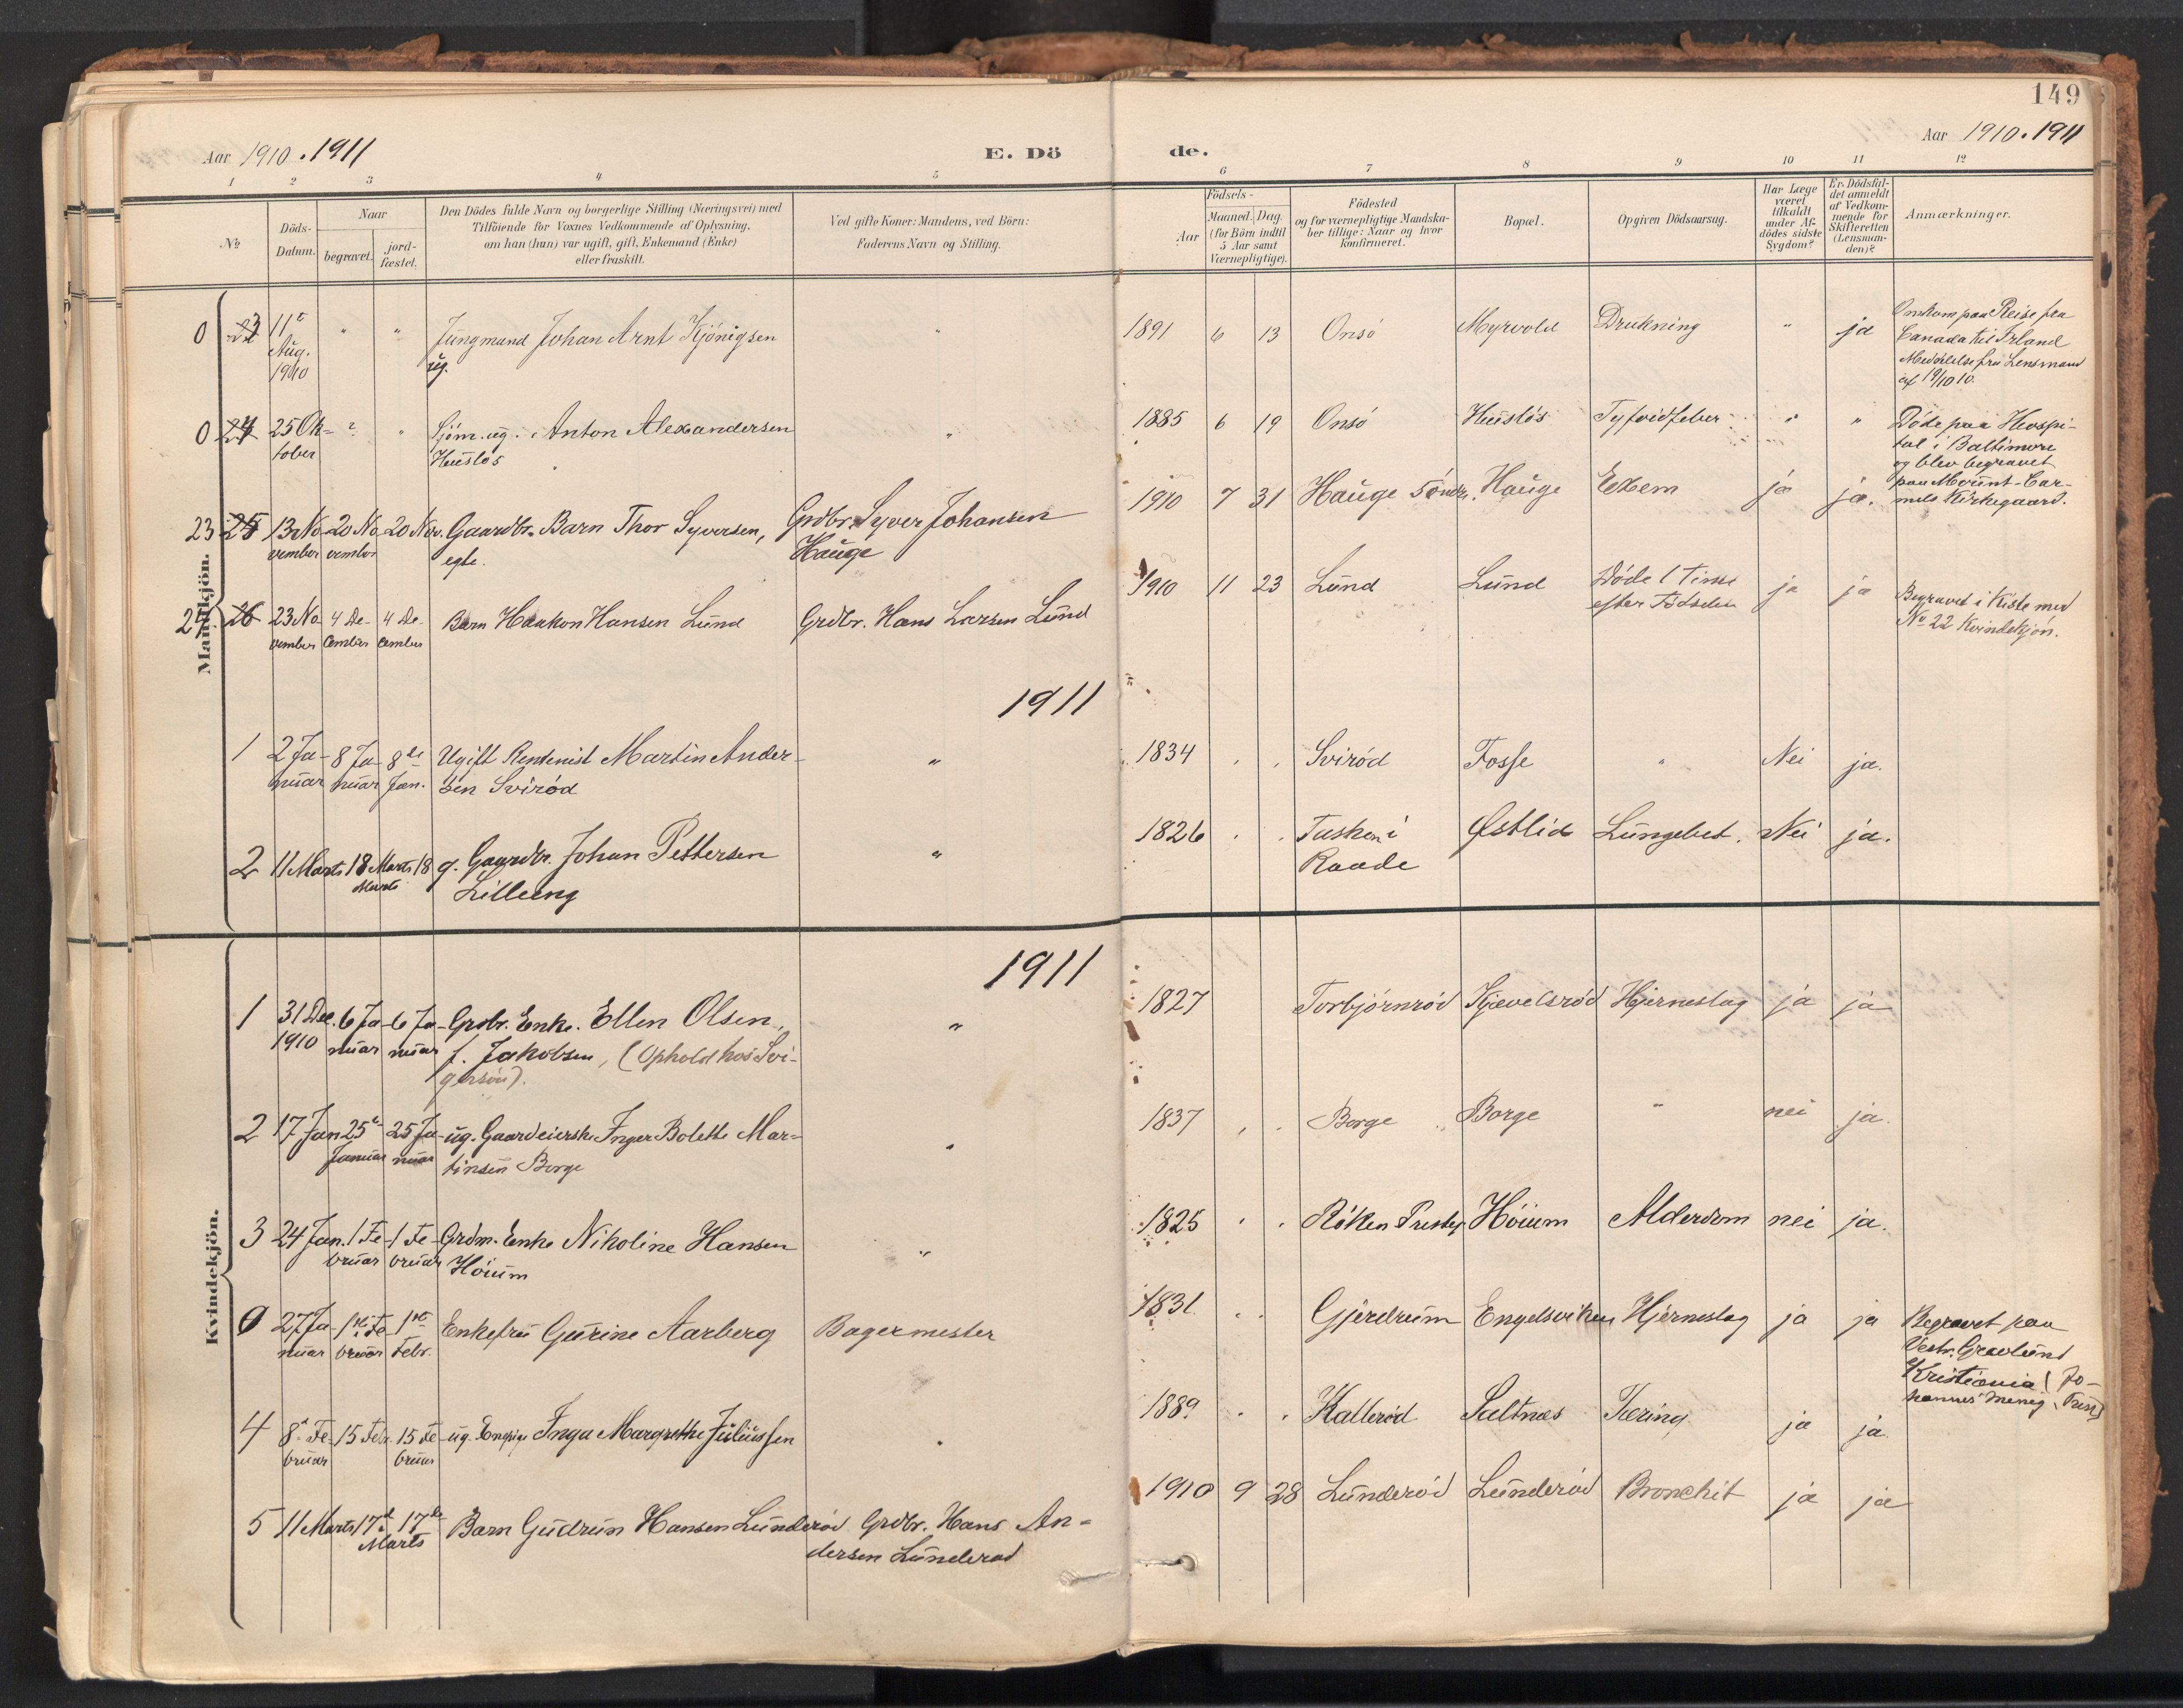 149
Aar 1910 . 1911
E. Dö
de.
Aar 1910 . 1911
1 2 3 4 5 6 7 8 9 10 11 12
No
Döds-
Datum.
Naar
begravet.
jord-
fæstet.
Den Dödes fulde Navn og borgerlige Stilling (Næringsvei) med
Tilföiende for Voxnes Vedkommende af Oplysning,
om han (hun) var ugift, gift, Enkemand (Enke)
eller fraskilt.
Ved gifte Koner: Mandens, ved Börn:
Faderens Navn og Stilling.
Födsels-
Aar
Maaned. Dag.
(for Börn indtil
5 Aar samt
Værnepligtige).
Födested
og for værnepligtige Mandska-
ber tillige: Naar og hvor
konfirmeret.
Bopæl.
Opgiven Dödsaarsag.
Har Læge
været
tilkaldt
under Af-
dödes sidste
Sygdom?
Er Dödsfal-
det anmeldt
af Vedkom-
mende for
Skifteretten
(Lensman-
den)?
Anmærkninger.
Mandkjön.
0 23 11te " " Jungmand Johan Arnt Kjönigsen " 1891 6 13 Onsö Myrvold Drukning " ja Omkom paa Reise fra
Aug. ug. Canada til Irland
1910 Meddelelse fra Lensmand
af 19/10 10.
0 24 25 Ok- " " Sjöm. ug. Anton Alexandersen " 1885 6 19 Onsö Huslös Tyfoidfeber " " Döde paa Hospi-
tober Huslös tal i Baltimore
og blev begravet
paa Mount-Car-
mels Kirkegaard.
23 25 13 No- 20 No- 20 Nov. Gaardbr. Barn Thor Syversen, Grdbr. Syver Johansen 1910 7 31 Hauge söndr. Hauge Exem ja ja.
vember vember egte. Hauge
24 26 23 No- 4 De- 4 De- Barn Haakon Hansen Lund Grdbr. Hans Larsen Lund 1910 11 23 Lund Lund Döde 1 Time ja ja Begravet i Kiste med
vember cember cember efter Födselen No 22 Kvindekjön.
1911
1 2 Ja- 8 Ja- 8de Ugift Rentenist Martin Ander- " 1834 . . Sviröd Fosse " Nei ja.
nuar nuar Jan. sen Sviröd
2 11 Marts 18 Marts 18 g. Gaardbr. Johan Pettersen " 1826 . . Tasken i Østlid Lungebet. Nei ja.
Marts Lilleeng Raade
Kvindekjön.
1911
1 31 Dec. 6 Ja- 6 Ja- Grdbr. Enke. Ellen Olsen, " 1827 Torbjörnröd Kjævelsröd Hjerneslag ja ja
1910 nuar nuar f. Jakobsen, (Ophold hos Svi-
gersön).
2 17 Jan 25de 25 Ja- ug. Gaardeierske Inger Bolette Mar- " 1837 . . Borge Borge " nei ja.
Januar nuar tinsen Borge
3 24 Jan. 1 Fe- 1 Fe- Grdm. Enke Nikoline Hansen " 1825 . . Röken Prestegj Höium Alderdom nei ja.
bruar bruar Höium
0 27 Ja- 1ste Fe- 1ste Enkefru Gurine Aarberg Bagermester 1831 . . Gjerdrum Engelsviken Hjerneslag ja ja Begravet paa
nuar bruar Febr. Vestr. Gravlund
Kristiania (Jo-
hannes' menig. Prest)
4 8de Fe- 15 Febr. 15 Fe- ug. Inga Margrethe Juliussen . 1889 . . Kalleröd Saltnæs Tæring ja ja.
bruar bruar
5 11 Marts 17de 17de Barn Gudrun Hansen Lunderöd Grdbr. Hans An- 1910 9 28 Lunderöd Lunderöd Bronchit ja ja
Marts dersen Lunderød